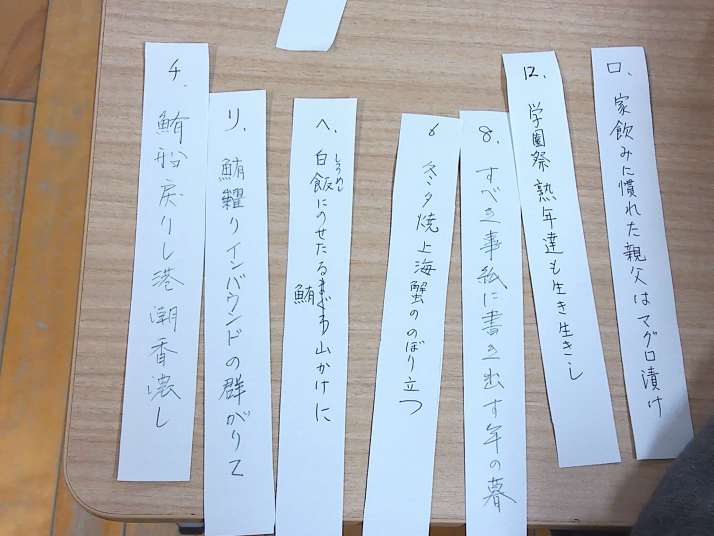 ロ、家飲みに慣れた親父はマグロ漬け
12、学園祭熟年達も生き生きし
8、すべき事紙に書き出す年の暮
6 冬夕焼上海蟹ののぼり立つ
ヘ、白飯にのせたる鮪山かけに
しろめし
リ、鮪糶りインバウンドの群がりて
チ、鮪船戻りし港潮香濃し